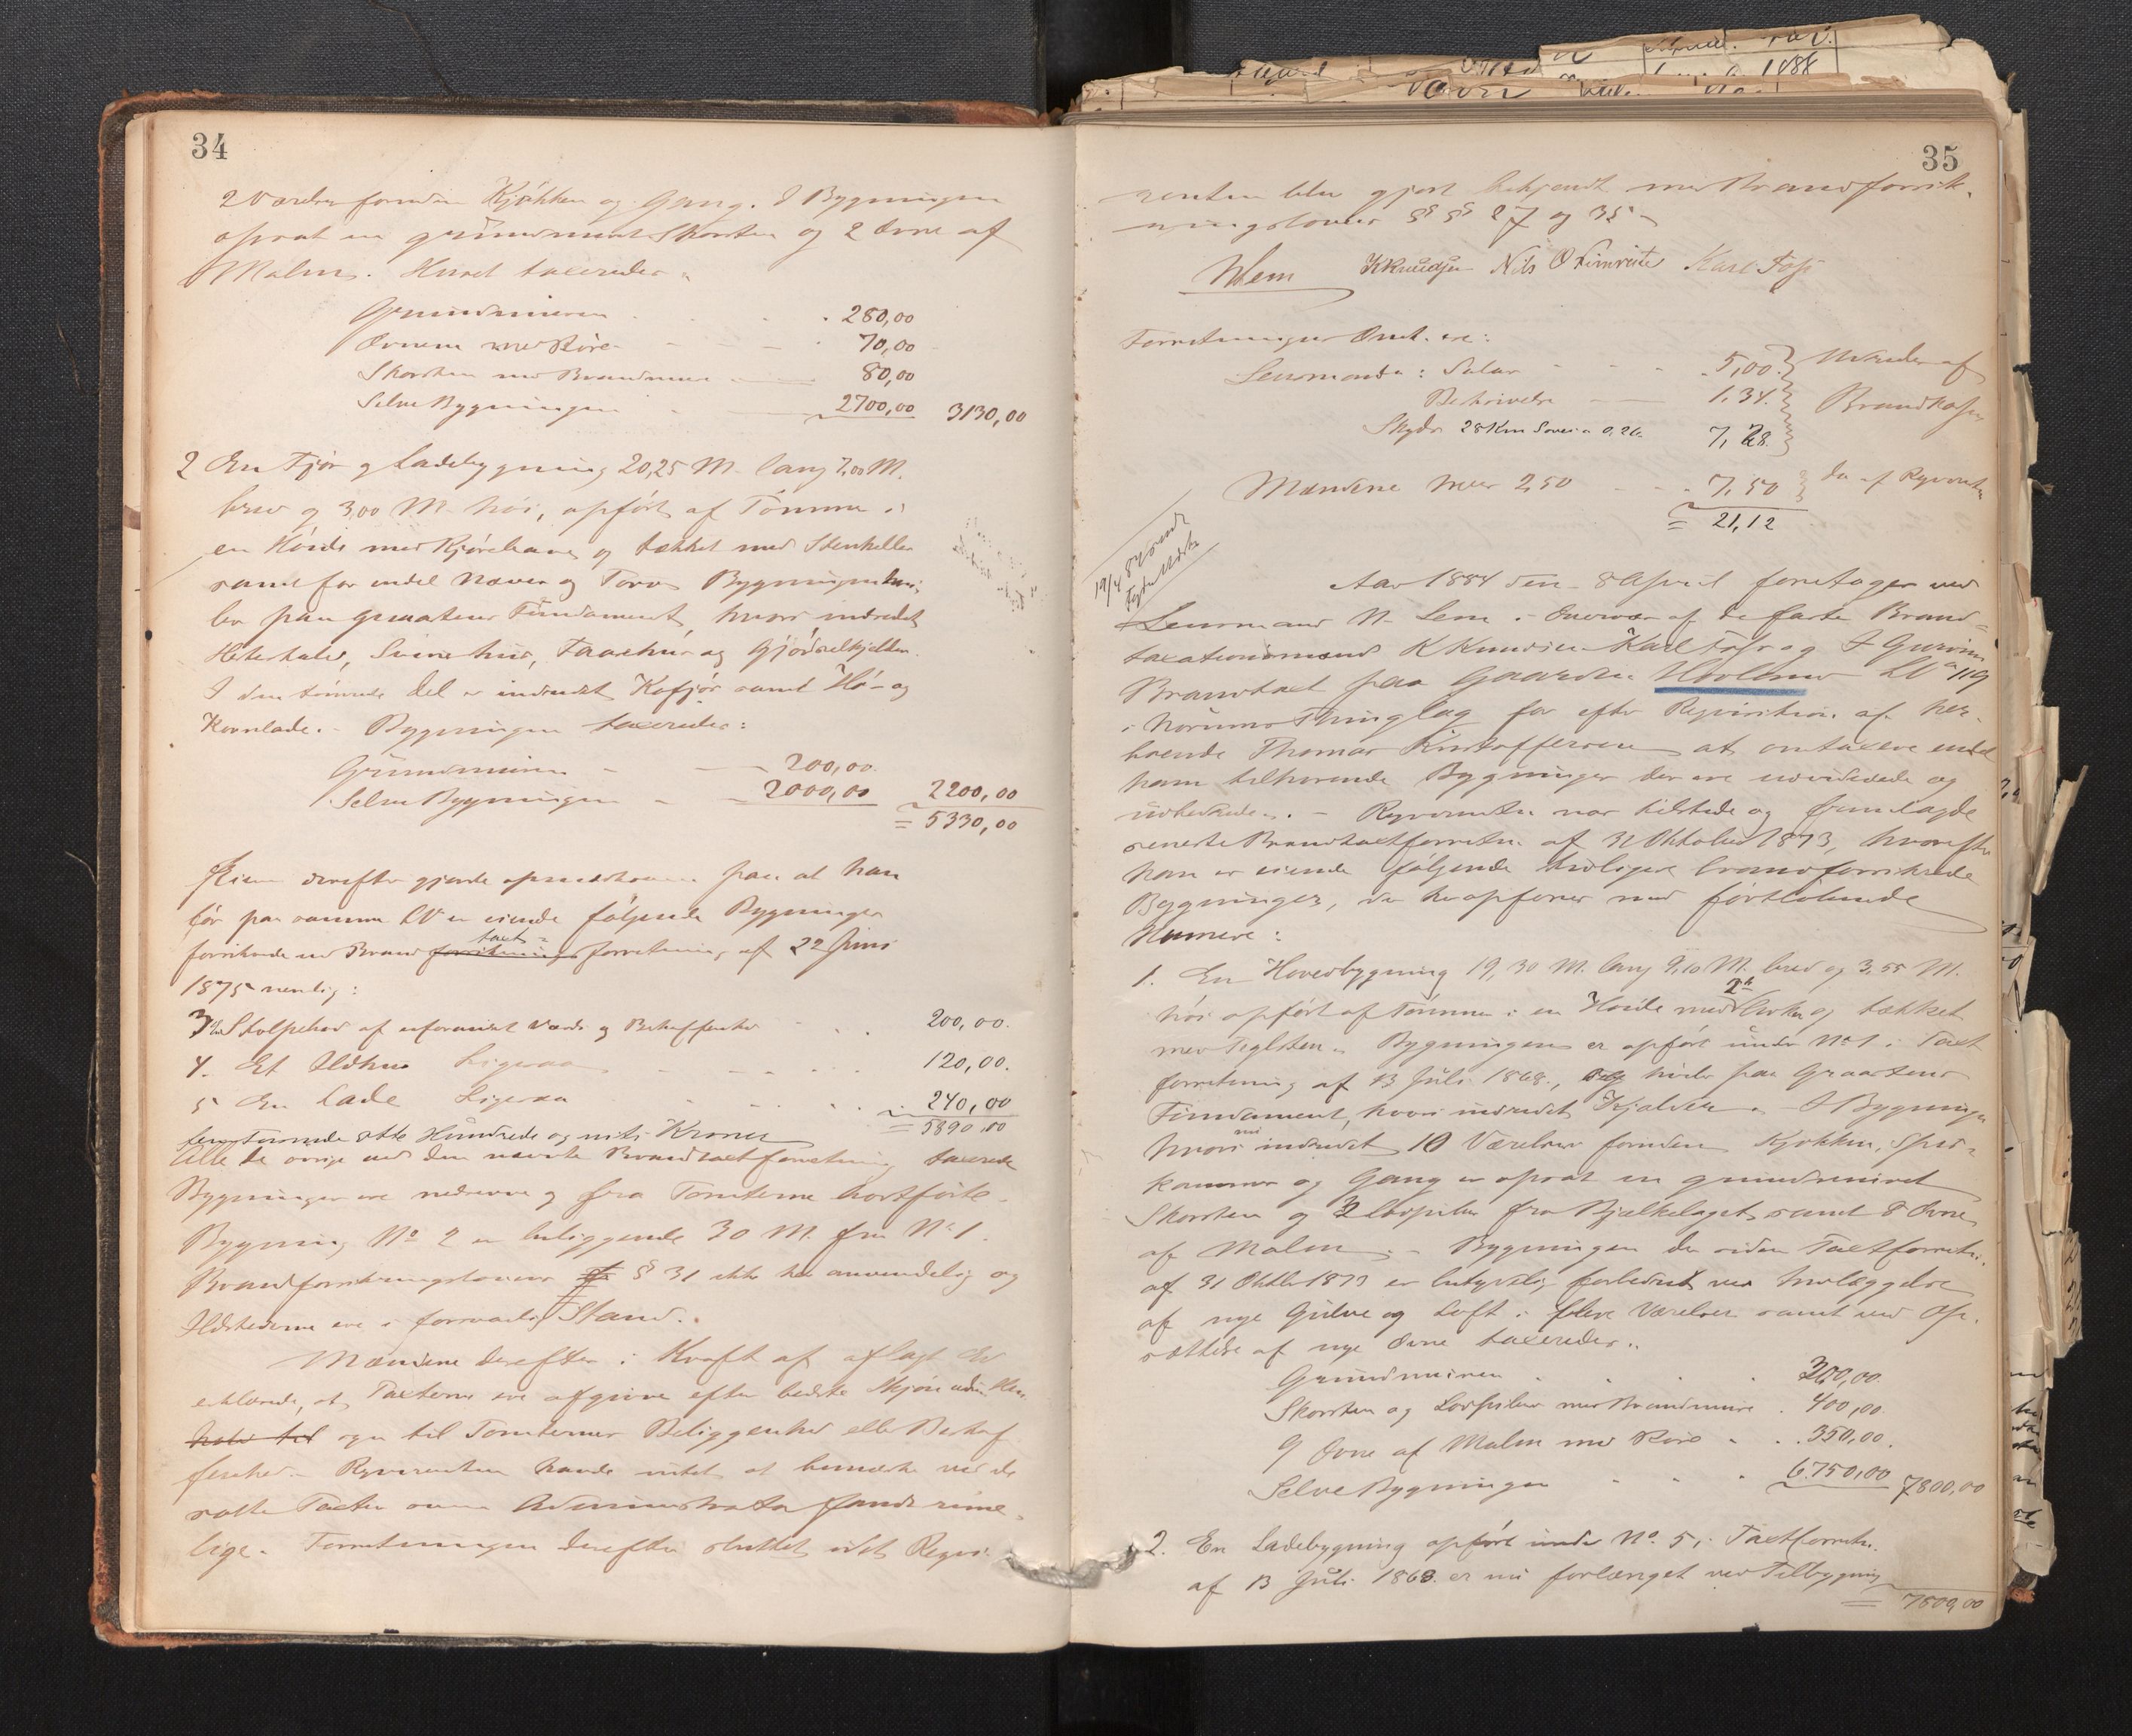 34
2 Værelser foruden Kjøkken og Gang. I Bygningen
opsat en grundmuret Skorsten og 2 Ovne af
Malm. Huset taxeredes
Grundmuren 280,00
Ovnene med Rør 70,00
Skorsten med Brandmur 80,00
Selve Bygningen 2700,00 3130,00
2 En Fjøs og Ladebygning 20,25 M. lang 7,00 M.
bred og 3,00 M. høi, opført af Tømmer i
en Høide med Kjørebane og tækket med Stenheller
samt for endel Næver og Torv. Bygningen hvi-
ler paa graastens Fundament, hvori indredet
Hestestald, Svinehus, Faarehus og Gjødselkjelder.
I den tømrede Del er indredet Kofjøs samt Hø- og
Kornlade. - Bygningen taxeredes:
Grundmuren 200,00.
Selve Bygningen 2000,00 2200,00
= 5330,00
derefter gjorde opmærksom paa at han
før paa samme LN er eiende følgende Bygninger
taxt-
forsikrede ved Brand forsikrings forretning af 22 Juni
1875 nemlig:
3 Stolpebod af uforandret Værdi og Beskaffenhed 200,00.
4. Et Ildhus Ligesaa 120,00.
5 En Lade Ligesaa 240,00
= 5890,00
femtusinde otte Hundrede og niti Kroner
Alle de øvrige ved den nævnte Brandtaxtforretning taxerede
Bygninger ere nedrevne og fra Tomterne bortførte.
Bygning No 2 er beliggende 30 M. fra No 1.
Brandforsikringslovens § 31 ikke her anvendelig og
Ildstederne ere i forsvarlig Stand.
Mændene derefter i Kraft af aflagt Ed
erklærede, at Taxterne ere afgivne efter bedste Skjøn uden Hen-
hold til syn til Tomternes Beliggenhed eller Beskaf
fenhed. - Reqvirenten havde intet at bemærke ved de
satte Taxter som Administrator fandt rime-
lige. - Forretningen derefter sluttet idet Reqvi-
35
renten blev gjort bekjendt med Brandforsik-
ringslovens §§ 27 og 35
NLem KKnudsen Nils O Nimreite Karl Foss
Forretningens Omk. ere:
Lensmanden: Salær 5,00. Udredes af
Beskrivelse 1,34. Brandkassen
Skyds 28 Km 0,26 7,28
Mændene hver 2,50 7,50 do af Reqvirenten
= 21,12
19/4 84
Aar 1884 den 8 April foretoges ved
Lensmand N. Lem i Overvær af de faste Brand-
taxationsmænd K Knudsen Karl Foss og
Brandtaxt paa Gaarden LN 119
i Norums Thinglag for efter Reqvisition af her-
boende Thomas Kristoffersen at omtaxere endel
ham tilhørende Bygninger der ere udvidede og
udbedrede. - Reqvirenten var tilstede og fremlagde
seneste Brandtaxtforretn. af 31 Oktober 1873, hvorefter
han er eiende følgende tidligere brandforsikrede
Bygninger, der her opføres med fortløbende
Numere:
1. En Hovedbygning 19,30 M. lang 9,10 M. bred og 3,55 M.
høi opført af Tømmer i en Høide med 2de Arker og tækket
med Teglsten. Bygningen er opført under No 1 i Taxt
forretning af 13 Juli 1868, og hviler paa Graastens
Fundament, hvori indredet Kjelder. - I Bygningen
hvori nu indredet 10 Værelser foruden Kjøkken, Spis-
kammer og Gang er opsat en grundmuret
Skorsten og 3 Lodpiber fra Bjælkelaget samt 8 Ovne
af Malm. - Bygningen der siden Taxtforretn.
af 31 Oktbr 1873 er betydelig forbedret ved Indlæggelse
af nye Gulve og Loft i flere Værelser samt ved Op-
sættelse af nye Ovne taxeredes:
Grundmuren 300,00.
Skorsten og Lodpiber med Brandmure 400,00.
9 Ovne af Malm med Rør 350,00.
Selve Bygningen 6.750,00 7800,00
2. En Ladebygning opført under No. 5 i Taxtforretn.
af 13 Juli 1868 er nu forlænget ved Tilbygning
= 7800,00